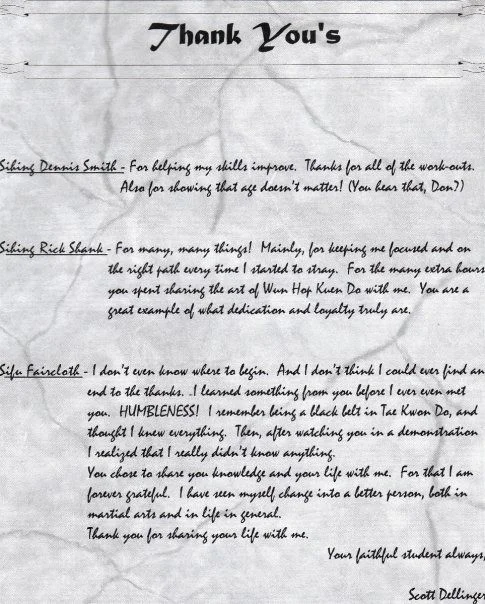 Thank You's
Sihing Dennis Smith - For helping my skills improve. Thanks for all of the work-outs.
Also for showing that age doesn't matter! (You hear that, Don?)
Sihing Rick Shank - For many, many things! Mainly, for keeping me focused and on
the right path every time I started to stray. For the many extra hours
you spent sharing the art of Wun Hop Kuen Do with me. You are a
great example of what dedication and loyalty truly are.
Sifu Faircloth - I don't even know where to begin. And I don't think I could ever find an
end to the thanks. .I learned something from you before I ever even met
you. HUMBLENESS! I remember being a black belt in Tae Kwon Do, and
thought I knew everything. Then, after watching you in a demonstration
I realized that I really didn't know anything.
You chose to share you knowledge and your life with me. For that I am
forever grateful. I have seen myself change into a better person, both in
martial arts and in life in general.
Thank you for sharing your life with me.
Your faithful student always,
Scott Dellinger